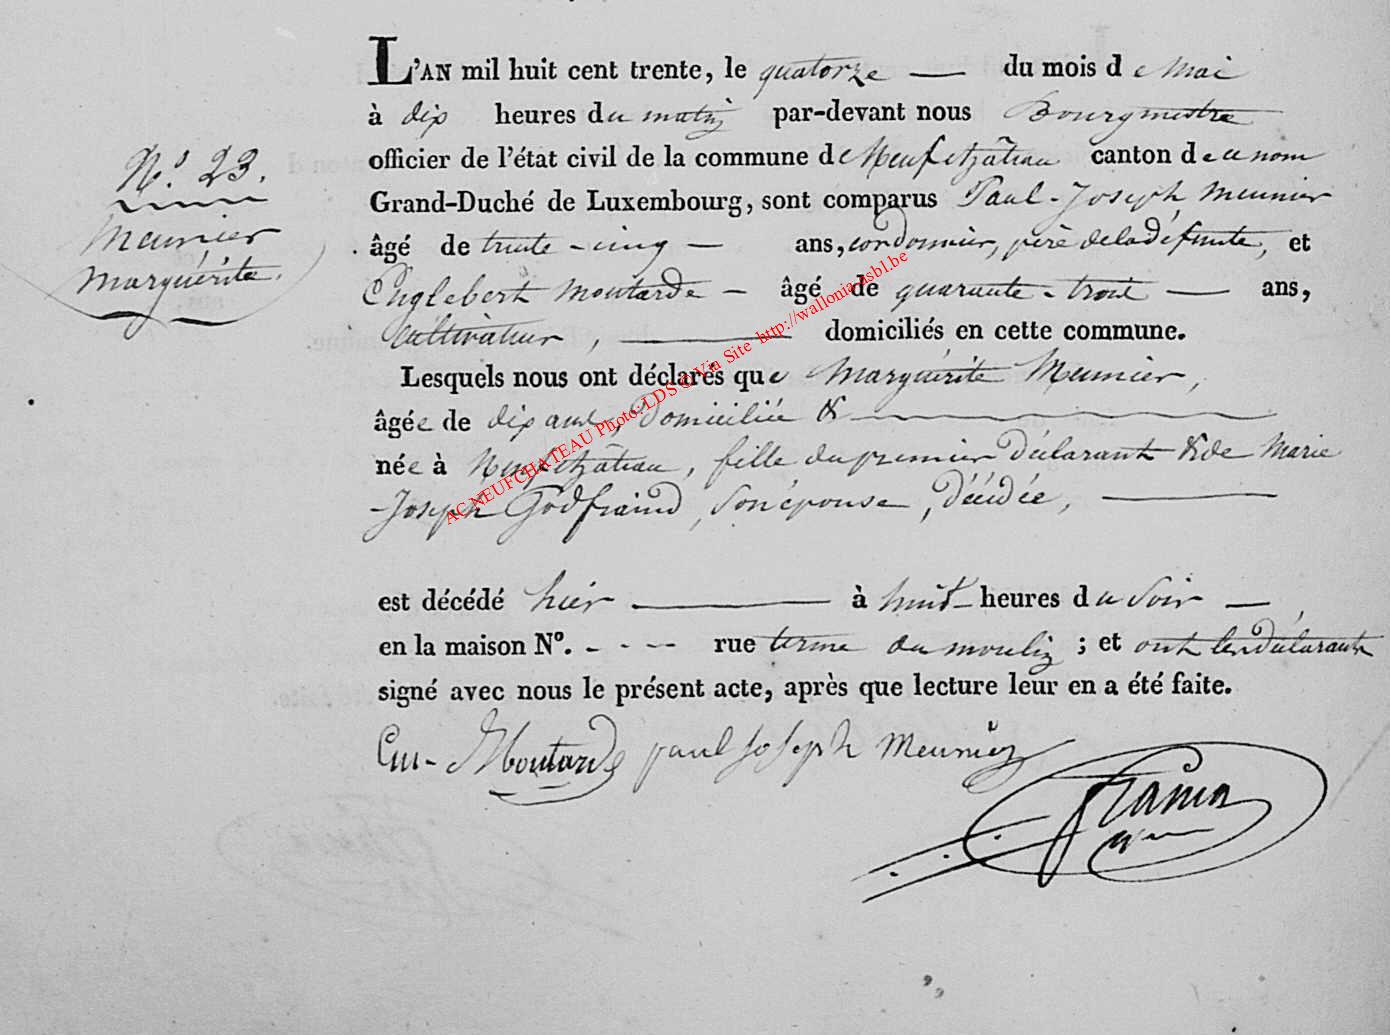 L'AN mil huit cent trente, le quatorze — du mois de Mai
à dix heures du matin par-devant nous Bourgmestre
officier de l'état civil de la commune de Neufchâteau canton de ce nom
Grand-Duché de Luxembourg, sont comparus Paul-Joseph Meunier
âgé de trente-cinq — ans, cordonnier, père de la défunte, et
Englebert Moutarde — âgé de quarante-trois — ans,
cultivateur, — domiciliés en cette commune.
Lesquels nous ont déclarés que Marguérite Meunier,
âgée de dix ans, domiciliée & —
née à Neufchâteau, fille du premier déclarant & de Marie
-Joseph Godfraind, son épouse, décédée, —
est décédé hiér — à huit heures du soir —
en la maison N°. - - - - rue terme du moulin ; et ont les déclarants
signé avec nous le présent acte, après que lecture leur en a été faite.
N°. 23.
Meunier
Marguérite.
Moutarde paul joseph Meunier
AC NEUFCHATEAU Photo: LDS © Via Site http://wallonia-asbl.be